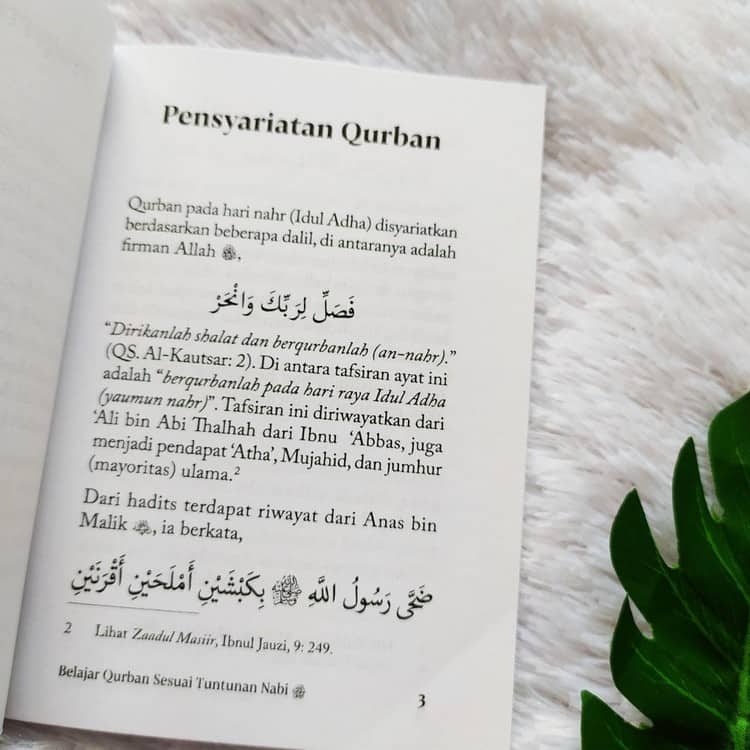 Pensyariatan Qurban
Qurban pada hari nahr (Idul Adha) disyariatkan
berdasarkan beberapa dalil, di antaranya adalah
firman Allah ﷻ,
فَصَلِّ لِرَبِّكَ وَانْحَرْ
“Dirikanlah shalat dan berqurbanlah (an-nahr).”
(QS. Al-Kautsar: 2). Di antara tafsiran ayat ini
adalah “berqurbanlah pada hari raya Idul Adha
(yaumun nahr)”. Tafsiran ini diriwayatkan dari
‘Ali bin Abi Thalhah dari Ibnu ‘Abbas, juga
menjadi pendapat ‘Atha’, Mujahid, dan jumhur
(mayoritas) ulama.²
Dari hadits terdapat riwayat dari Anas bin
Malik, ia berkata,
ضَحَّى رَسُولُ اللَّهِ ﷺ بِكَبْشَيْنِ أَمْلَحَيْنِ أَقْرَنَيْنِ
2 Lihat Zaadul Masiir, Ibnul Jauzi, 9: 249.
Belajar Qurban Sesuai Tuntunan Nabi ﷺ
3